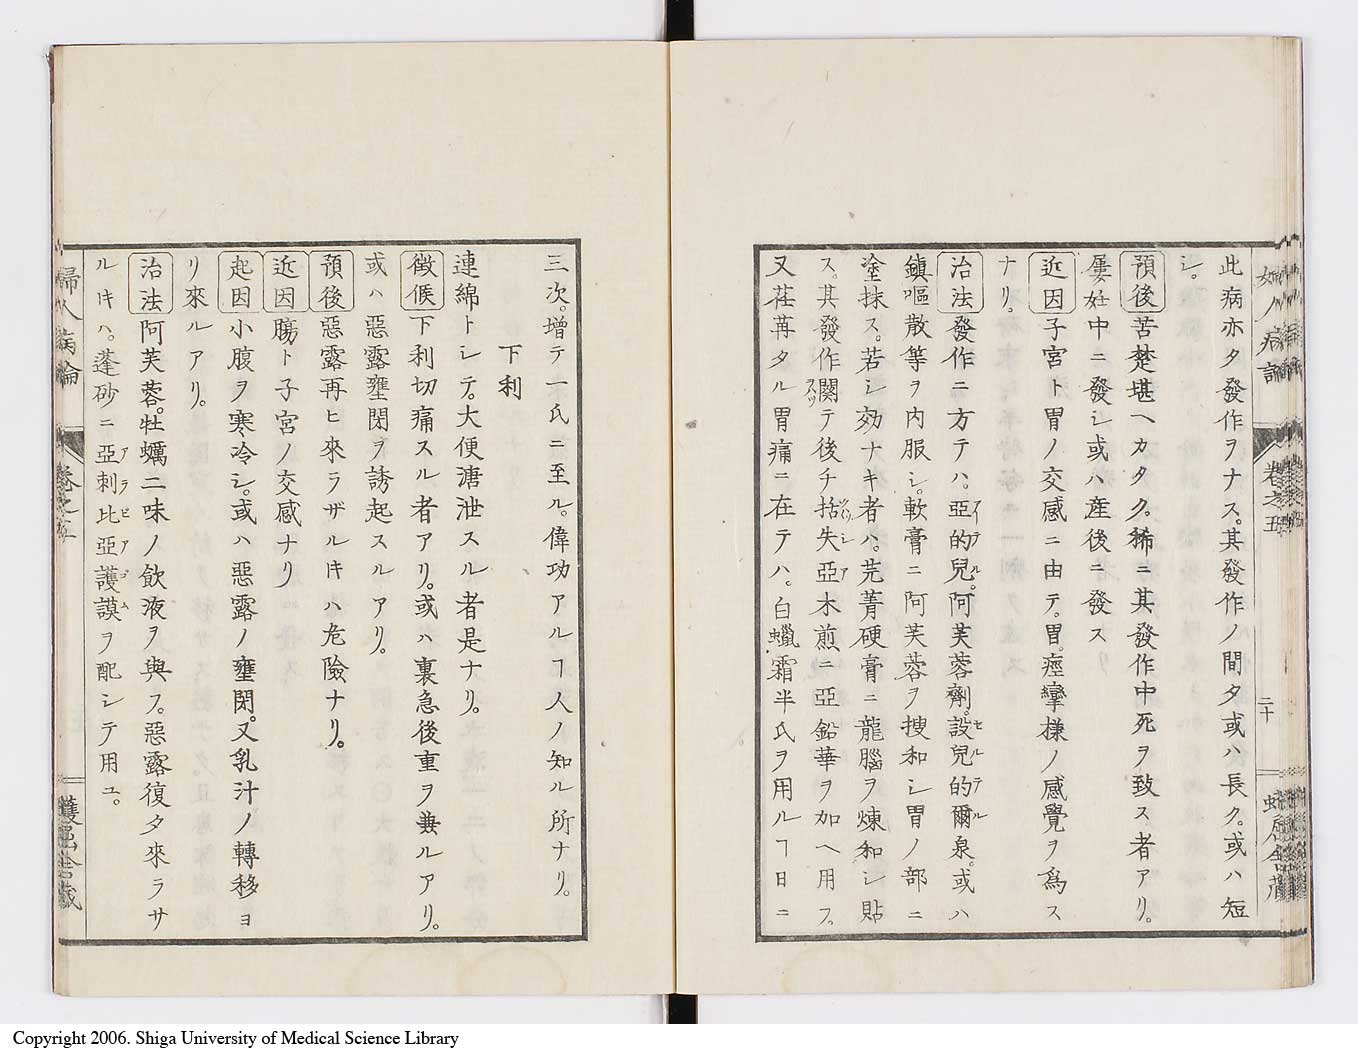 此病亦タ發作ヲナス。其發作ノ間タ或ハ長ク。或ハ短
シ。
預後 苦楚堪ヘカタク。稀ニ其發作中死ヲ致ス者アリ。
屢妊中ニ發シ或ハ産後ニ發ス
近因 子宮ト胃ノ交感ニ由テ。胃。痙攣様ノ感覺ヲ爲ス
ナリ。
治法 發作ニ方テハ。亞的兒。阿芙蓉劑。設兒的爾泉。或ハ
鎮嘔散等ヲ内服シ。軟膏ニ阿芙蓉ヲ搜和シ胃ノ部ニ
塗抹ス。若シ効ナキ者ハ。芫菁硬膏ニ龍腦ヲ煉和シ貼
ス。其發作闋テ後チ括失亞木煎ニ亞鉛華ヲ加ヘ用フ。
又荏苒タル胃痛ニ在テハ。白蠟霜半氏ヲ用ルヿ日ニ
婦人病論 卷之五 二十
三次。増テ一氏ニ至ル。偉功アルヿ人ノ知ル所ナリ。
下利
連綿トシテ。大便溏泄スル者是ナリ。
徴候 下利切痛スル者アリ。或ハ裏急後重ヲ兼ルアリ。
或ハ惡露壅閉ヲ誘起スルアリ。
預後 惡露再ヒ來ラザルキハ危險ナリ。
近因 膓ト子宮ノ交感ナリ
起因 小腹ヲ寒冷シ。或ハ惡露ノ壅閉。又乳汁ノ轉移ヨ
リ來ルアリ。
治法 阿芙蓉。牡蠣二味ノ飲液ヲ與フ。惡露復タ來ラサ
ルキハ。蓬砂ニ亞刺比亞護謨ヲ配シテ用ユ。
婦人病論 卷之五
Copyright 2006. Shiga University of Medical Science Library